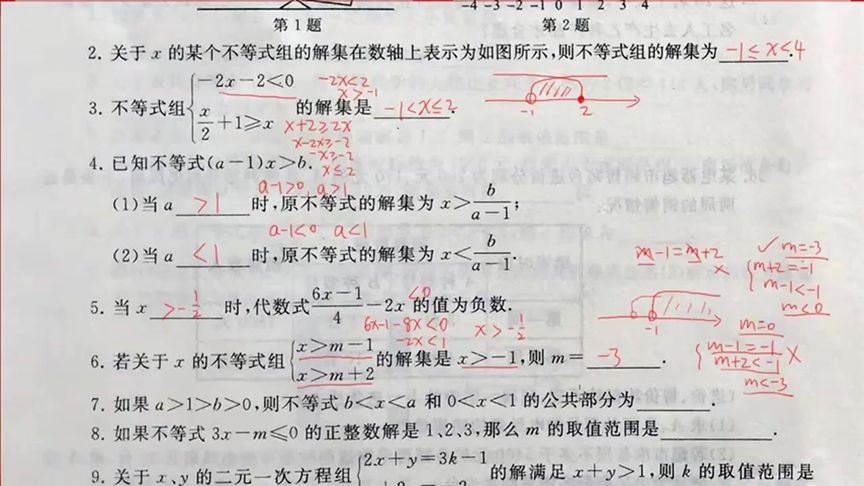 -4 -3 -2 -1 0 1 2 3 4
第1题 第2题
2. 关于 x 的某个不等式组的解集在数轴上表示为如图所示,则不等式组的解集为 -1≤x<4.
-2x-2≤0 -2x<2
x>-1
3. 不等式组 的解集是 -1<x≤2. -1 2
x/2+1≥x x+2≥2x
x-2x≥-2
-x≥-2
x≤2
4. 已知不等式(a-1)x>b.
a-1>0 a>1
(1)当 a >1 时,原不等式的解集为 x>b/(a-1);
a-1<0 a<1
(2)当 a <1 时,原不等式的解集为 x<b/(a-1).
m-1=m+2 × ✓ m=-3
m+2=-1
m-1<-1
m<0
5. 当 x >-1/2 时,代数式 (6x-1)/4-2x 的值为负数.
<0
6x-1-8x<0 x>-1/2
-2x<1
-1
m=0
m-1=-1 ×
m+2<-1
m<-3
6. 若关于 x 的不等式组{x>m-1 x>m+2 的解集是 x>-1,则 m= -3.
7. 如果 a>1>b>0,则不等式 b<x<a 和 0<x<1 的公共部分为 .
8. 如果不等式 3x-m≤0 的正整数解是 1、2、3,那么 m 的取值范围是 .
9. 关于 x、y 的二元一次方程组{2x+y=3k-1 的解满足 x+y>1,则 k 的取值范围是